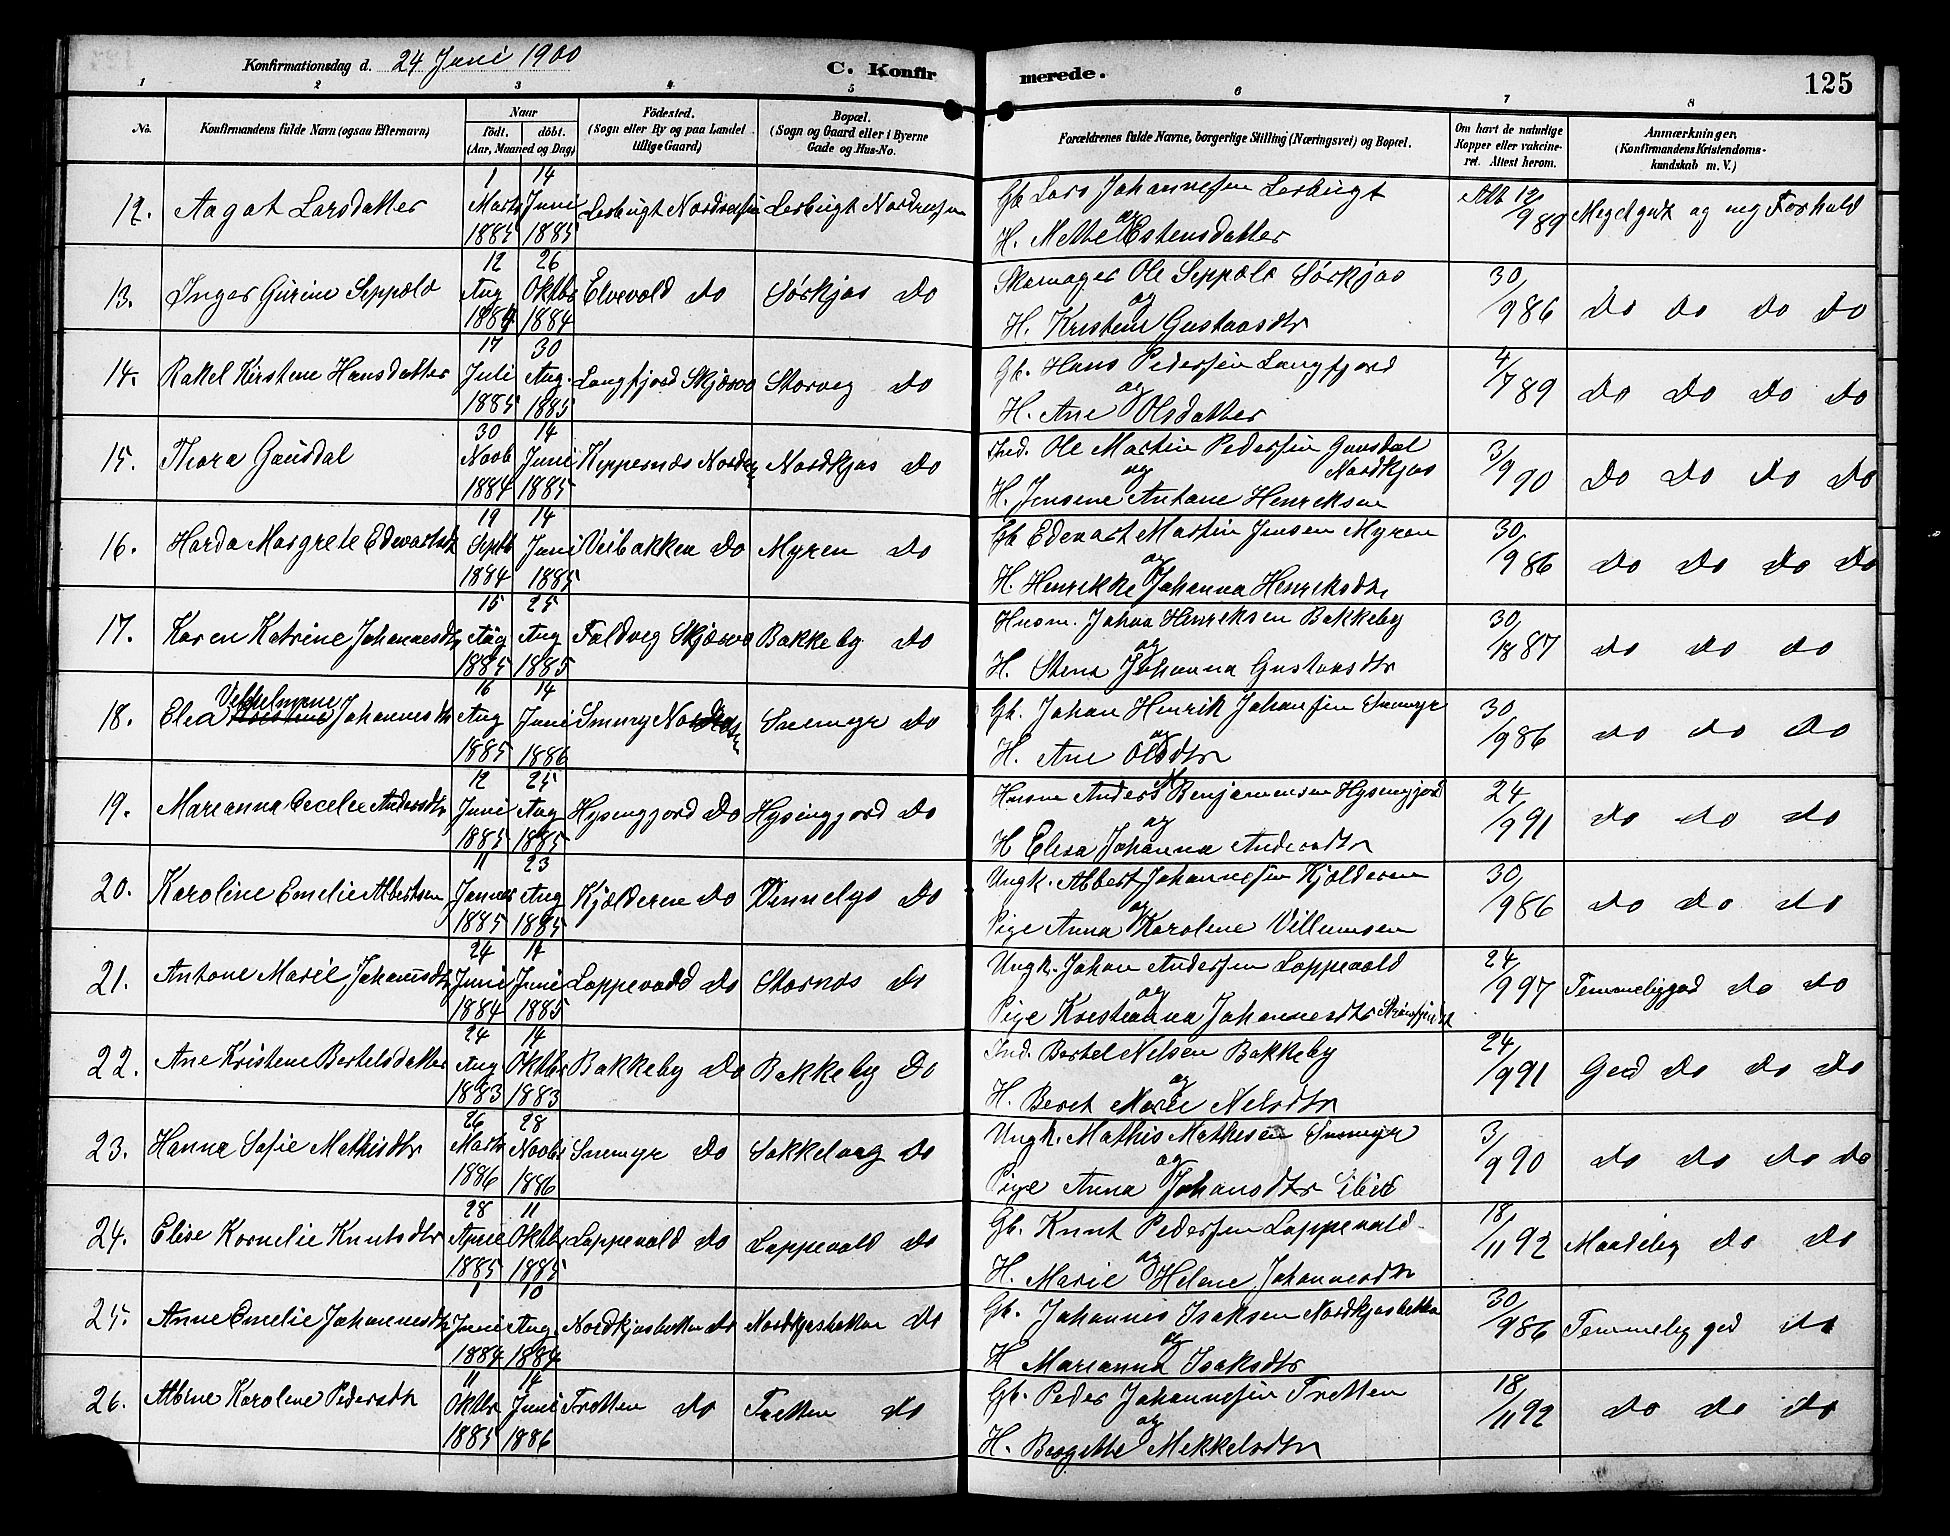 Konfirmationsdag d. 24 Juni 1900
C. Konfirmerede.
125
1 2 3 4 5 6 7 8
No. Konfirmandens fulde Navn (ogsaa Efternavn) Naar födt. döbt. (Aar, Maaned og Dag) Födested. (Sogn eller By og paa Landet tillige Gaard) Bopæl. (Sogn og Gaard eller i Byerne Gade og Hus-No. Forældrenes fulde Navne, borgerlige Stilling (Næringsvei) og Bopæl. Om havt de naturlige Kopper eller vakcineret. Attest herom. Anmærkninger. (Konfirmandens Kristendomskundskab m. V.)
12. Aagot Larsdatter 1 Marts 1885 14 Juni 1885 Lerbugt Nordreisen Lerbugt Nordreisen Gb Lars Johannesen Lerbugt og H. Mette Estensdatter Att 12/9 89 Meget godt og meg Forhold
13. Inger Gurine Seppælæ 12 Aug 1884 26 Oktbr 1884 Elvevold do Sørkjos do Skomager Ole Seppælæ Sørkjos og H. Kristine Gustavsdtr 30/9 86 do do do do
14. Rakel Kirstene Hansdatter 17 Juli 1885 30 Aug. 1885 Langfjord Skjærvø Storvig do Gb. Hans Pedersen Langfjord og H. Ane Olsdatter 4/7 89 do do do do
15. Thora Gausdal 30 Novb 1884 14 Juni 1885 Keppernæs Nordr Nordkjos do Ind. Ole Martin Pedersen Gausdal Nordkjos og H. Jensine Antone Henriksen 3/9 90 do do do do
16. Harda Margrete Edevartsdtr 19 Septb 1884 14 Juni 1885 Veibakken do Myren do Gb Edevart Martin Jensen Myren og H. Henrikke Johanna Henriksdtr 30/9 86 do do do do
17. Karen Katrine Johannesdtr 15 Aug 1885 25 Aug 1885 Faldvig Skjærvø Bakkeby do Husm. Johan Henriksen Bakkeby og H. Stina Johanna Gustavsdtr 30/ 87 do do do
18. Elea Vilhelmine Johannesdtr 16 Aug 1885 14 Juni 1886 Snemyr do Gb. Johan Henrik Johansen Snemyr og H. Ane Olsdtr 30/9 86 do do do
19. Marianna Cecelie Andersdtr 12 Juni 1885 25 Aug 1885 Hysingjord do Hysingjord do Husm Anders N Benjaminsen Hysingjord og H Elisa Johanna Andersdtr 24/9 91 do do do
20. Karoline Emelie Albertsen 11 Januar 1885 23 Aug 1885 Kjælderen do Vennelyo do Ungk. Albert Johannesen Kjælderen og Pige Anna Karolene Villumsen 30/9 86 do do do
21. Antone Marie Johansdtr 24 Juni 1884 14 Juni 1885 Lappevold do Stornes do Ungk. Johan Andersen Lappevold og Pige Kristianna Johannesdtr 24/9 97 Temmeliggod do do
22. Ane Kristene Bertelsdatter 24 Aug 1883 14 Oktbr 1883 Bakkeby do Bakkeby do Ind. Bertel Nelsen Bakkeby og H. Beret Marie Nelsdtr 24/9 91 God do do do
23. Hanna Sofie Mathisdtr 26 Marts 1886 28 Novb 1886 Snemyr do Sokkelvag do Ungk. Mathis Mathesen Snemyr og Pige Anna Johansdtr Ibid 3/9 90 do do do do
24. Elise Kornelie Knutsdtr 28 April 1885 11 Oktbr 1885 Lappevold do Lappevold do Gb. Knut Pedersen Lappevold og H. Marie Helene Johannesdtr 18/11 92 Maadelig do do
25. Anne Emelie Johannesdtr 1 Juni 1884 10 Aug. 1884 Nordkjosbotten do Nordkjosbotten do Gb. Johannes Isaksen Nordkjosbotten og H Marianna Isaksdtr 30/9 86 Temmelig god do
26. Albine Karolene Pedersdtr 11 Oktbr 1885 14 Juni 1886 Fretten do Fretten do Gb. Peder Johannesen Fretten og H. Bergitte Mekkelsdtr 18/11 92 do do do